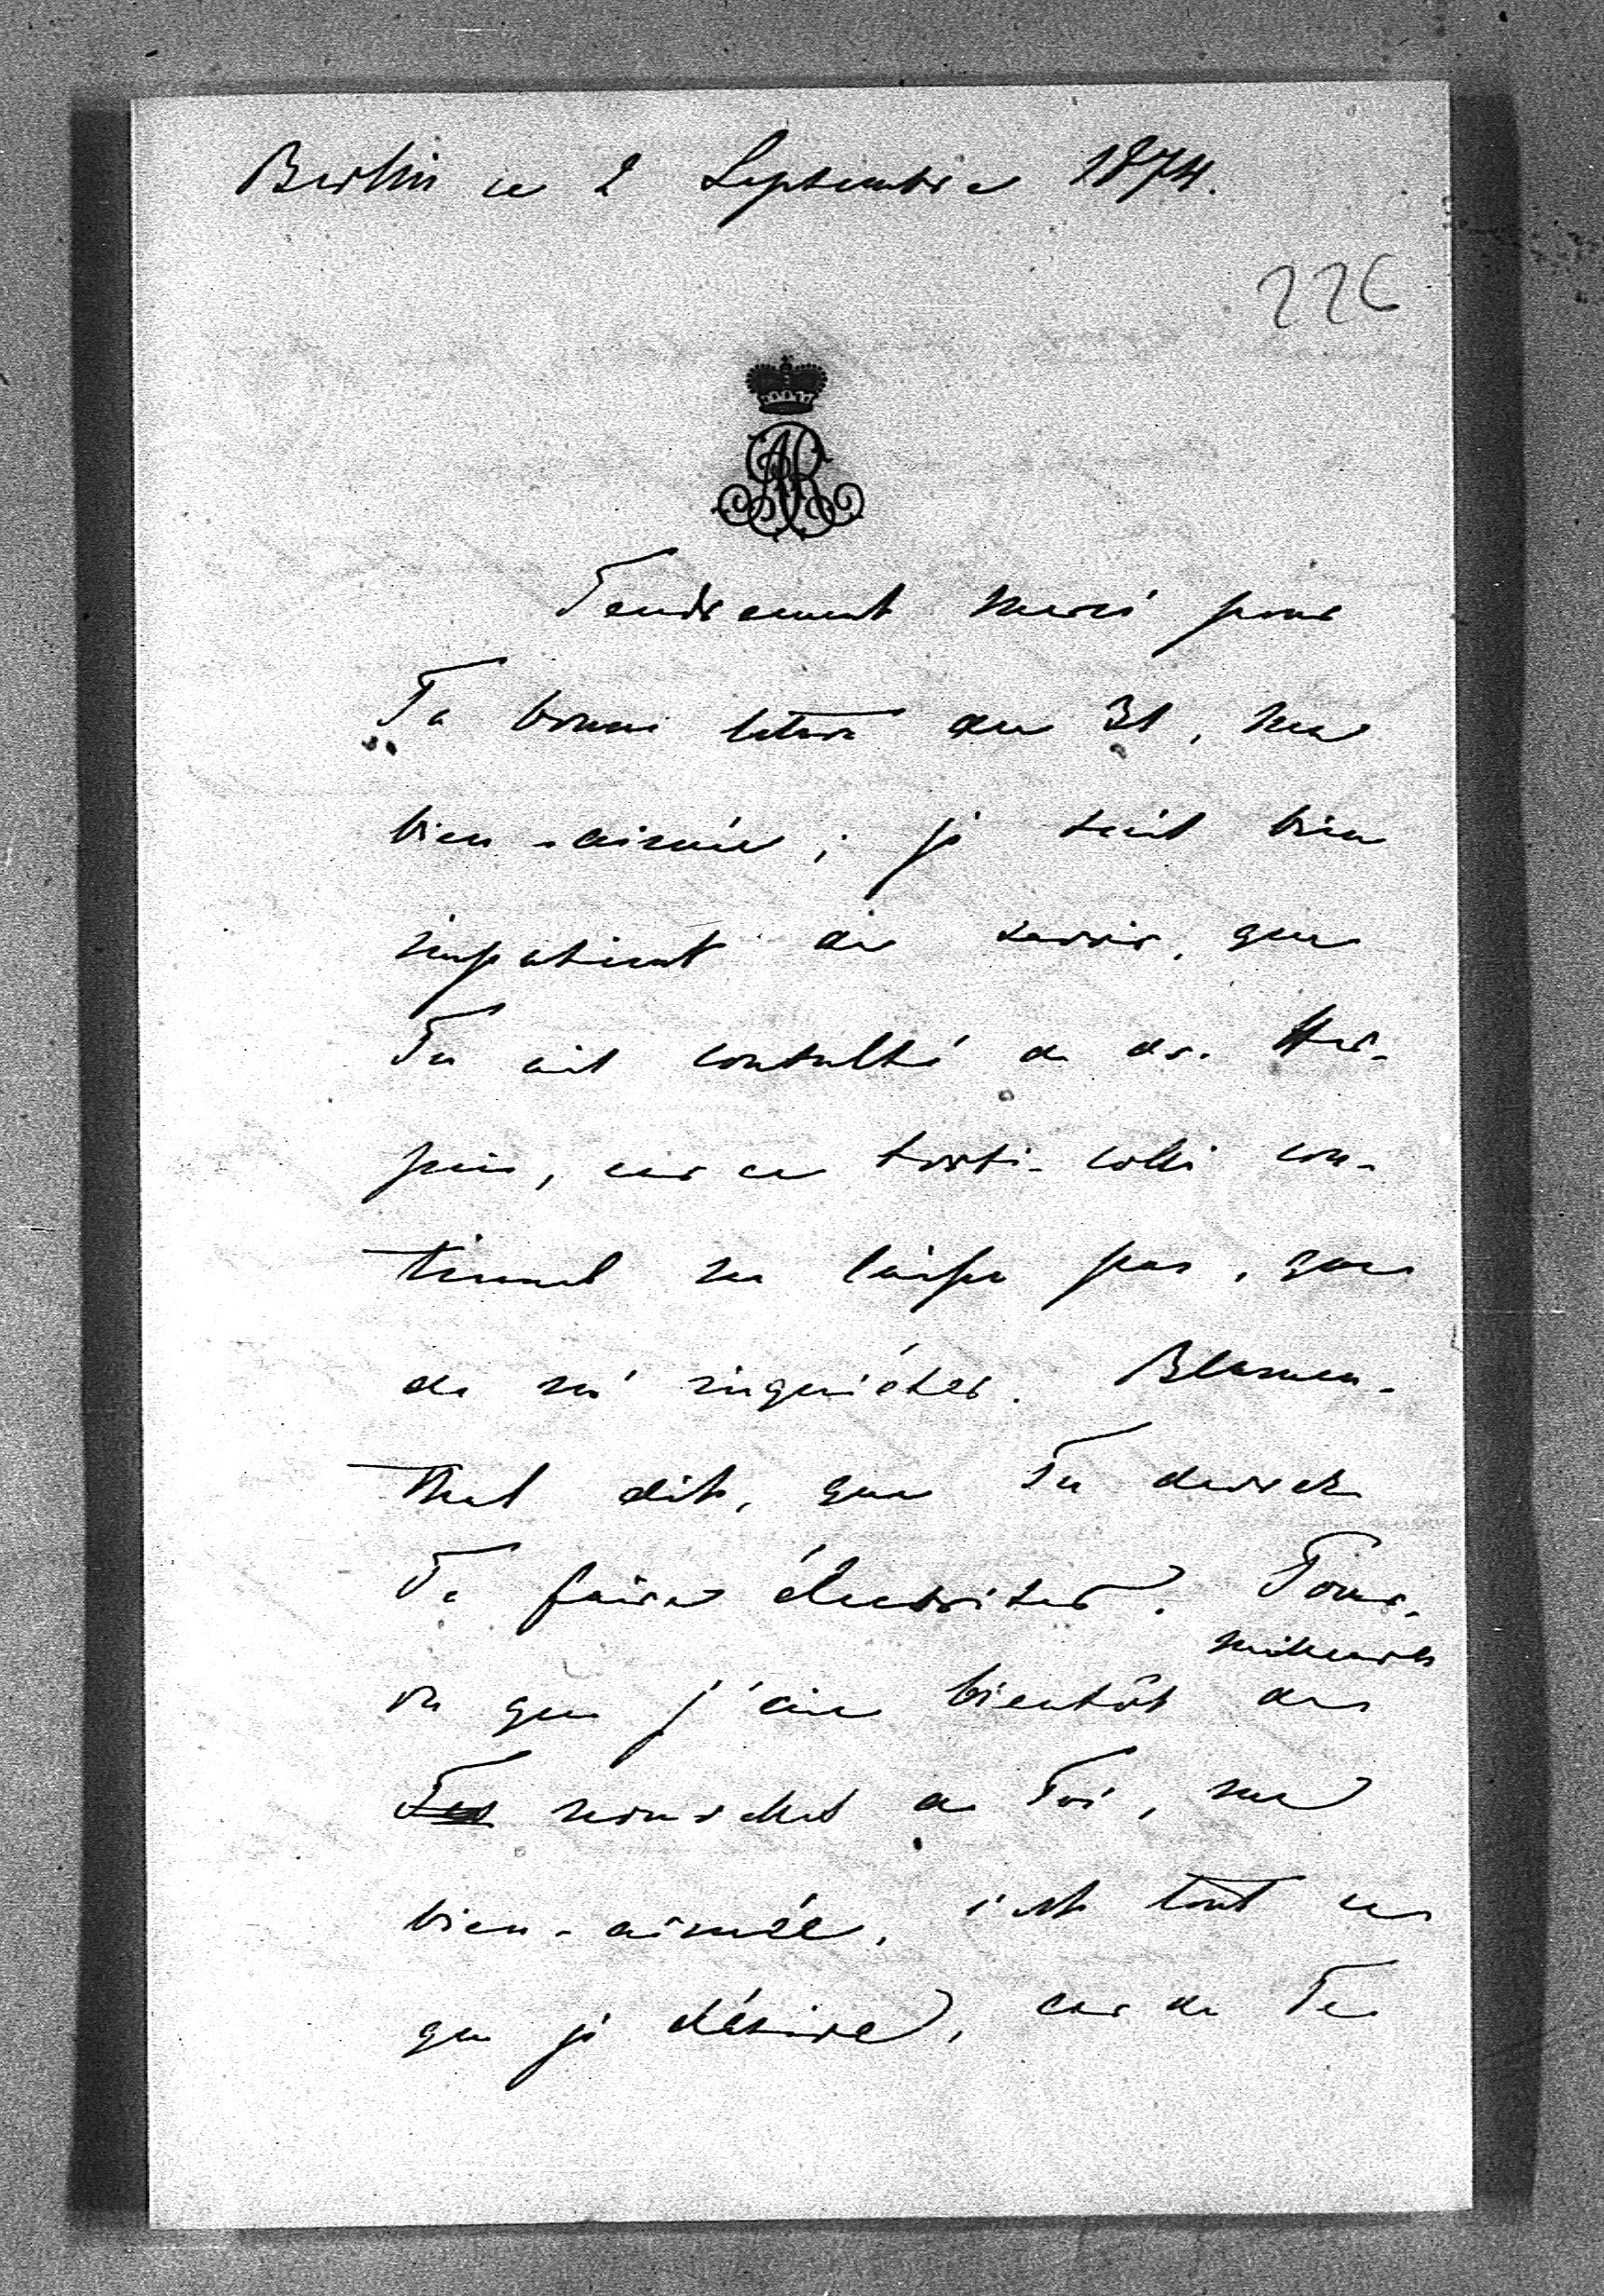 Berlin ce 2 Septembre 1874.
226
AR
Tendrement merci pour
Ta bonne lettre du 31, ma
bien-aimée; je suis bien
impatient de savoir, que
Tu ais consulté a dr.
car ce torti-colli con-
tinuel ne laisse pas, que
de m'inquiéter. Blumen-
thal dit, que Tu devrais
Te faire électriser. Pour-
vu que j'aie bientôt des
meilleures
nouvelles de Toi, ma
bien-aimée, c'est tout ce
que je désire, car de Te